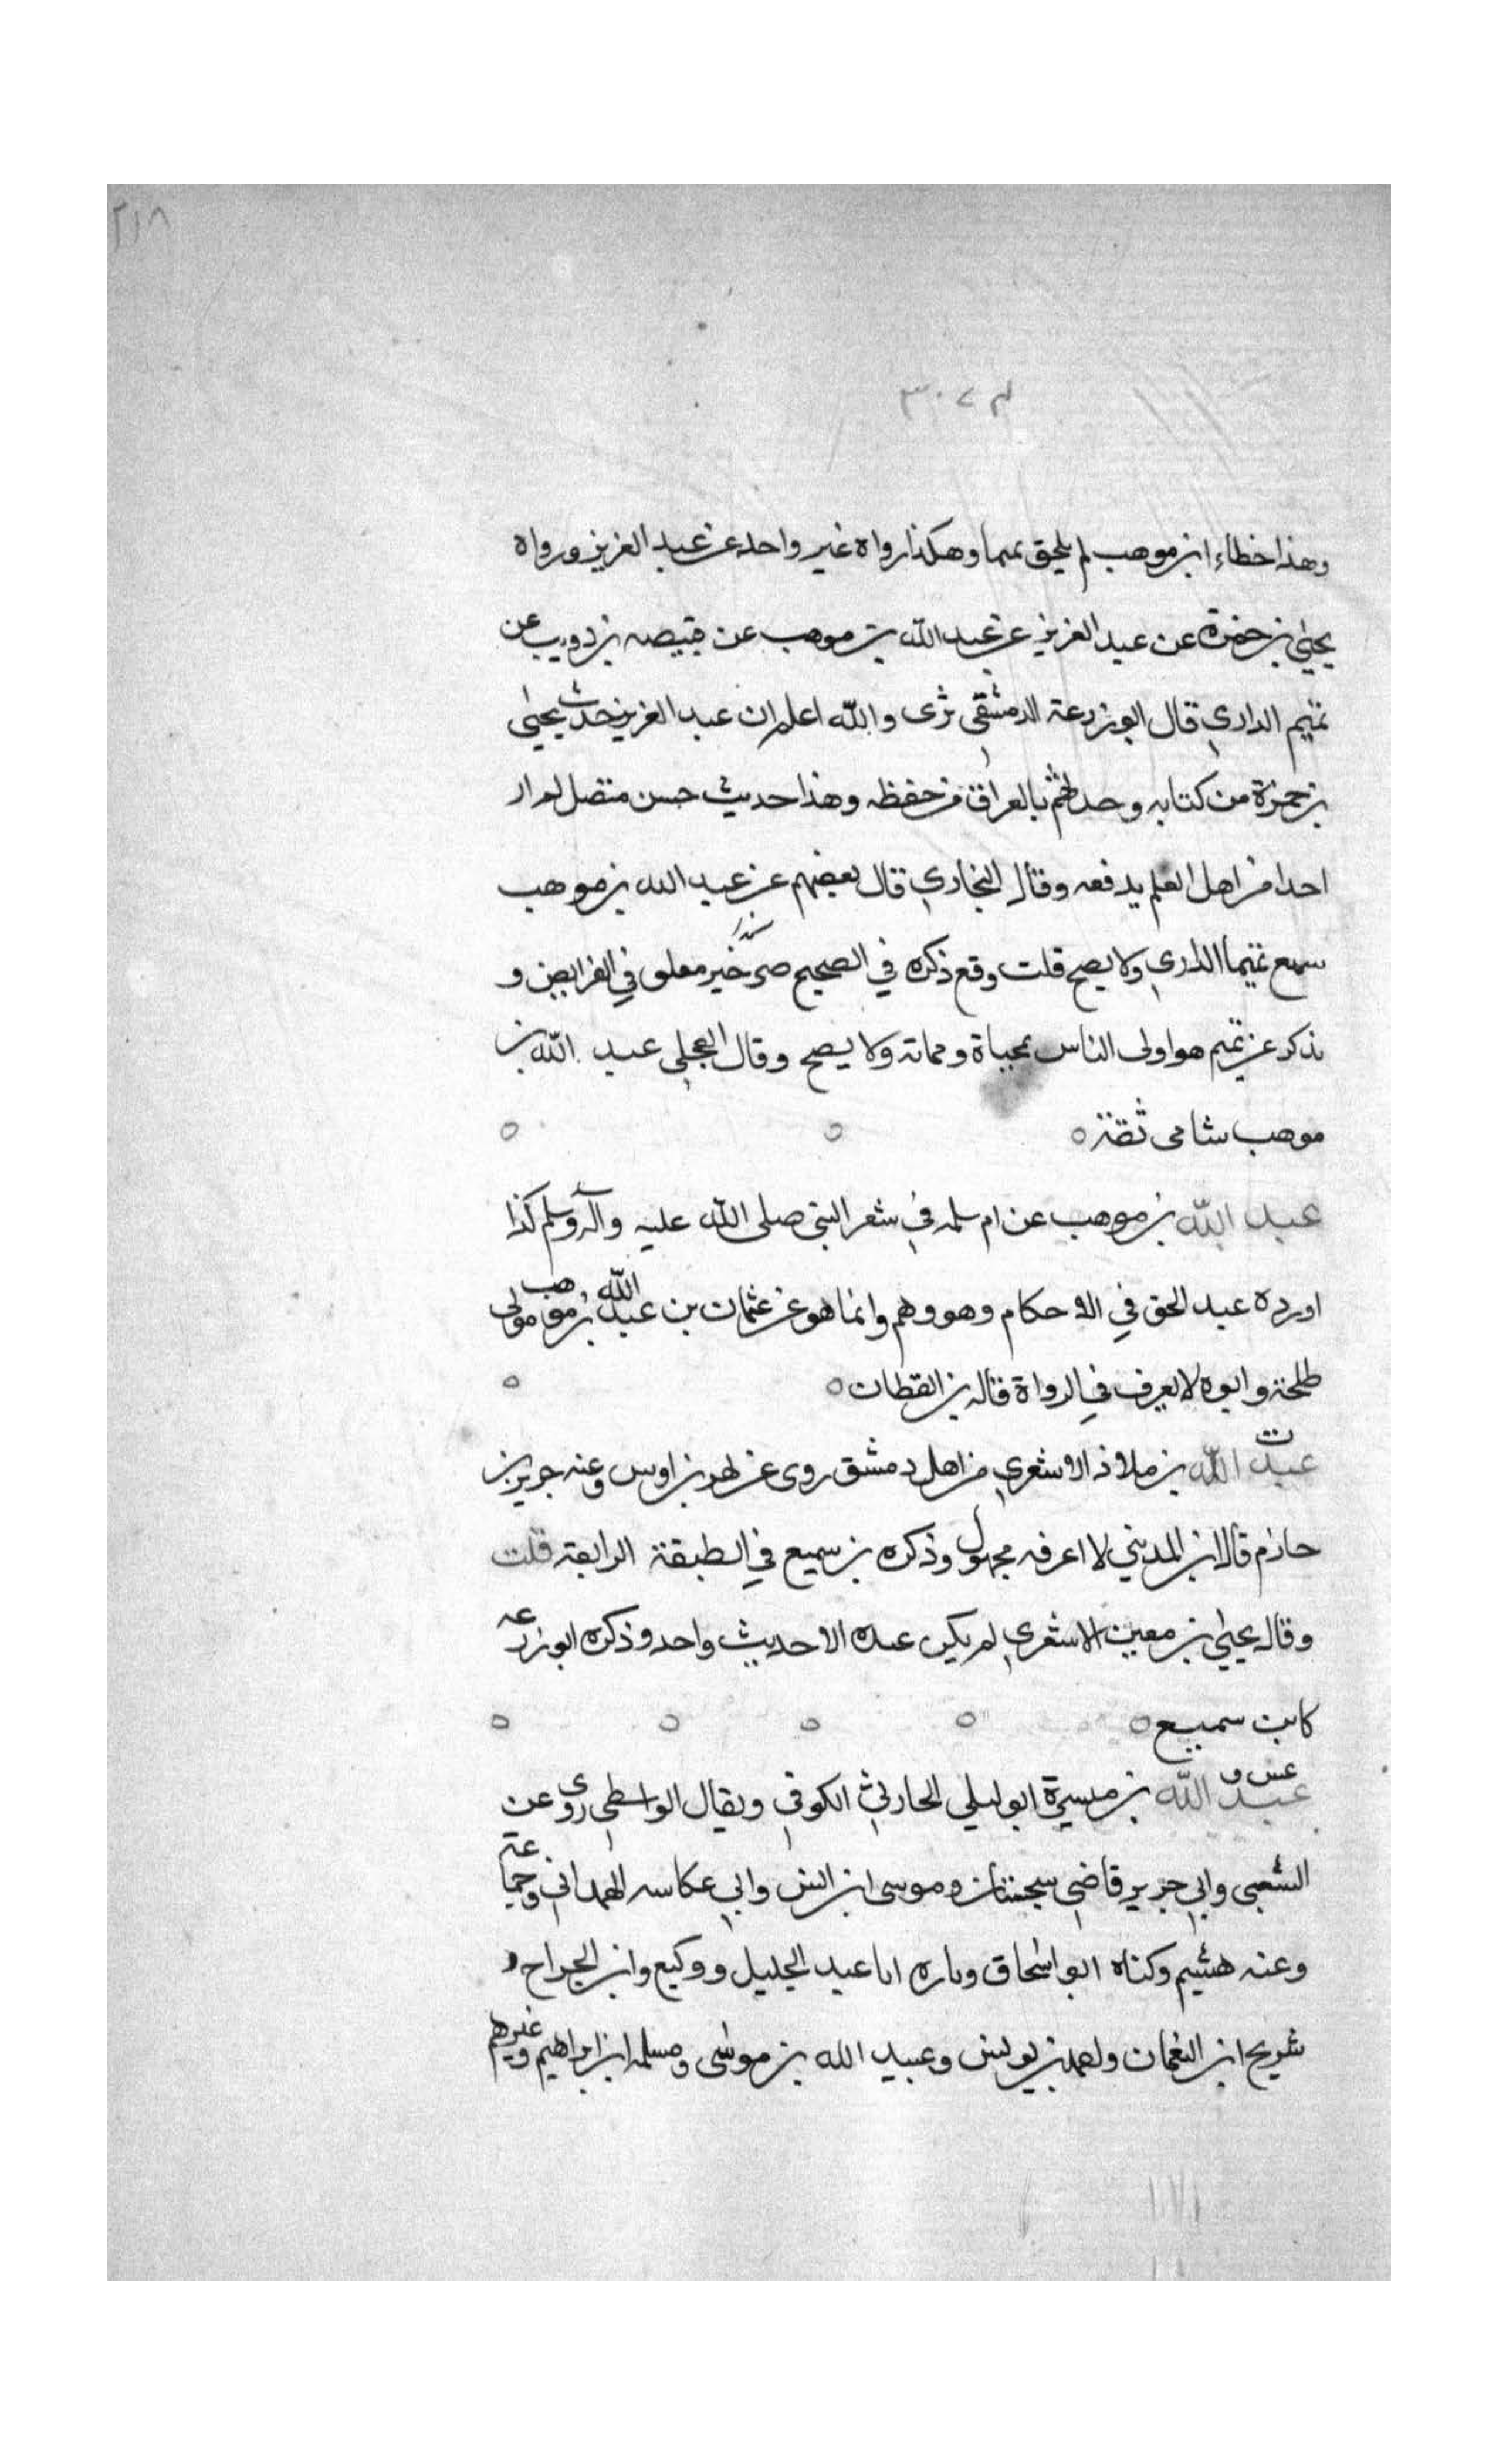 ٢١٨
وهذا خطاء ابن موهب لم يلحق تميما وهكذا رواه غير واحد عن عبد العزيز ورواه
يحيى بن حمزة عن عبد العزيز عن عبد الله بن موهب عن قبيصه بن ذويب عن
تميم الداري قال ابو زرعة الدمشقى نرى والله اعلم ان عبد العزيز حدث يحيى
بن حمزة من كتابه وحدثهم بالعراق من حفظه وهذا حديث حسن متصل لم ار
احدا من اهل العلم يدفعه وقال البخاري قال بعضهم عن عبد الله بن موهب
سمع تميما الداري ولا يصح قلت وقع ذكره في الصحيح معلق في الفرايض و
يذكر عن تميم هو اولى الناس بمحياة ومماته ولا يصح وقال العجلى عبد الله بن
موهب شامى ثقة ٥
عبد الله بن موهب عن ام سلمه في شعر النبي صلى الله عليه وآله وسلم كذا
اورده عبد الحق في الاحكام وهو وهم وانما هو عن عثمان بن عبد الله بن موهب مولى
طلحة وابوه لا يعرف في الرواة قاله بن القطان ٥
عبد الله بن ملاذ الاشعري من اهل دمشق روى عن بن اوس وعنه جرير بن
حازم قال ابن المديني لا اعرفه مجهول وذكره بن سميع في الطبقة الرابعة قلت
وقال يحيى بن معين الاشعري لم يكن عنده الا حديث واحد وذكره ابو زرعه
كابن سميع ٥
عس ق
عبد الله بن ميسرة ابو ليلى الحارثي الكوفي ويقال الواسطى روى عن
الشعبى وابي جرير قاضى سجستان وموسى ابن انس وابي عكاسه الهمداني وجماعة
وعنه هشيم وكناه ابو اسحاق وتاره ابا عبد الجليل ووكيع وابن الجراح و
شريح ابن النعمان واحمد بن يونس وعبيد الله بن موسى ومسلم ابن ابراهيم وغيرهم